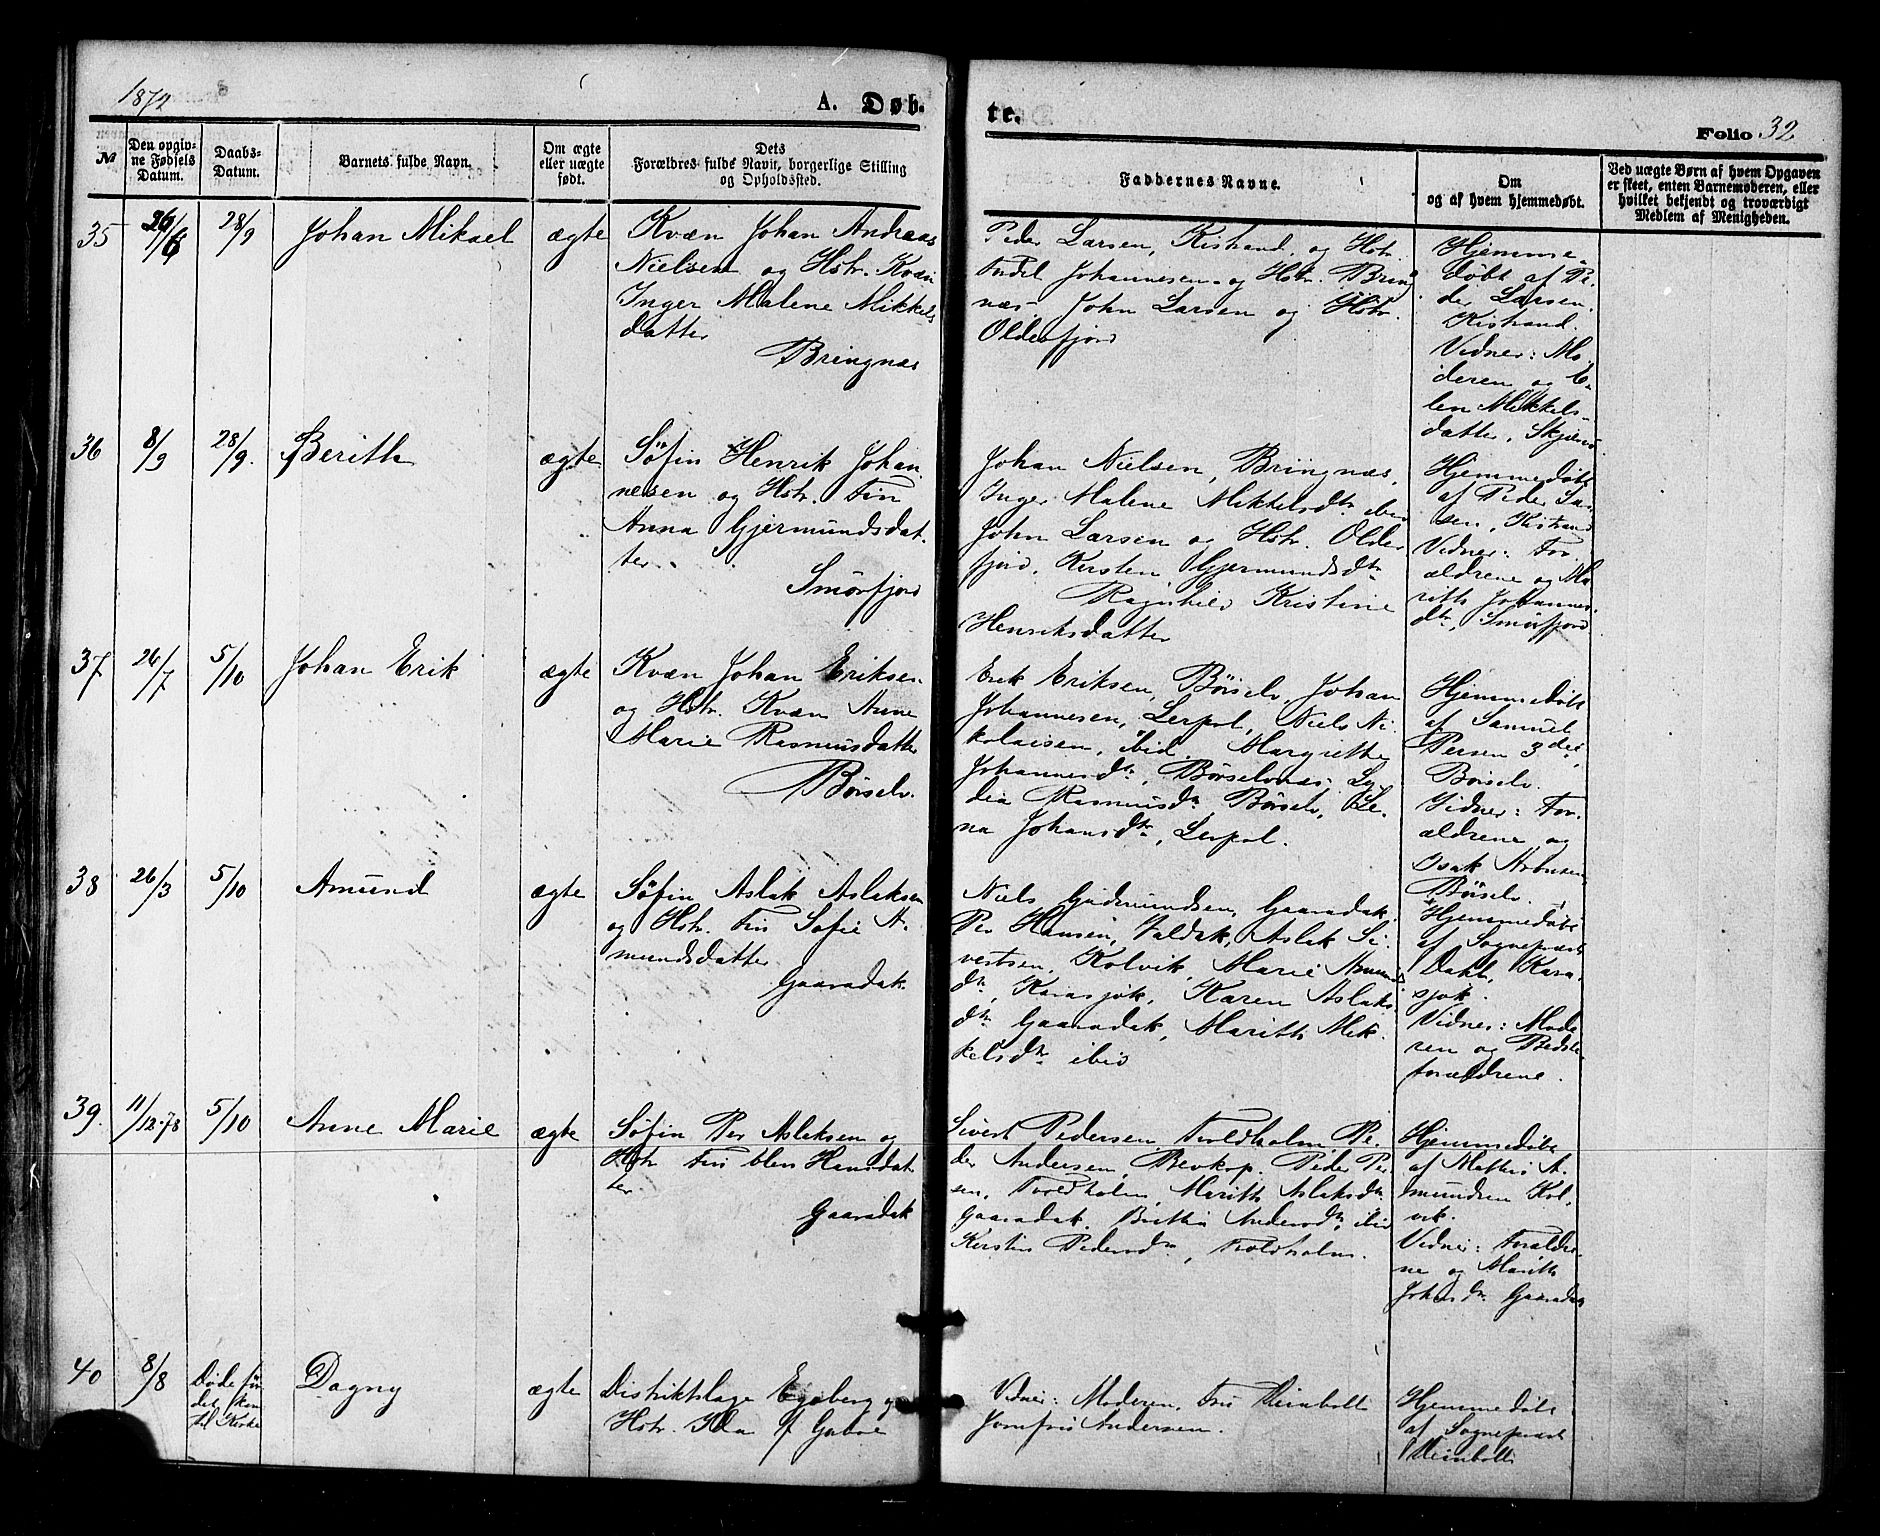 1872
A. Døb-
te.
Folio 32
№
Den opgivne Fødsels Datum.
Daabs-Datum.
Barnets fulde Navn.
Om ægte eller uægte født.
Dets Forældres fulde Navn, borgerlige Stilling og Opholdssted.
Faddernes Navne.
Om og af hvem hjemmedøbt.
Ved uægte Børn af hvem Opgaven er skeet, enten Barnemoderen, eller hvilket bekjendt og troværdigt Medlem af Menigheden.
35
28/9
Johan Mikael
ægte
Kvæn Johan Andreas
Nielsen og Hstr. Kvæn
Inger Malene Mikkels
datter
Bringnæs
Peder Larsen, Kistrand, og Hstr.
Johannesen og Hstr. Bring
næs. John Larsen og Hstr.
Olderfjord
Hjemme-
døbt af Pe-
der Larsen,
Kistrand.
Vidner: Mo-
deren og E-
len Mikkels-
datter,
36
8/9
28/9.
Berith
ægte
Søfin Henrik Johan-
nesen og Hstr. Fin
Anna Gjermundsdat-
ter.
Smørfjord
Johan Nielsen, Bringnæs,
Inger Malene Mikkelsdtr ibid
John Larsen og Hstr. Older
fjord, Kirsten Gjermundsdtr
Ragnhild Kristine
Henriksdatter
Hjemmedøbt
af Peder Lar-
sen, Kistrand
Vidner: For-
ældrene og Ma-
rith Johannes-
dtr, Smørfjord
37
26/7
5/10
Johan Erik
ægte
Kvæn Johan Eriksen
og Hstr. Kvæn Anne
Marie Rasmusdatter
Børselv.
Erik Eriksen, Børselv, Johan
Johannesen, Lerpol, Niels Ni-
kolaisen, ibid. Margrethe
Johannesdtr, Børselvnæs, Ly-
dia Rasmusdtr Børselv, Le-
na Johansdtr, Lerpol.
Hjemmedøbt
af Samuel
Persen 3die,
Børselv.
Vidner: For-
ældrene og
Isak
Børselv.
38
26/3
5/10
Amund
ægte
Søfin Aslak Aslaksen
og Hstr. Fin Sofie A-
mundsdatter
Gaaradak.
Niels Gudmundsen, Gaaradak.
Per Hansen, Valdak, Aslak Si-
vertsen, Kolvik, Marie Amunds
dtr, Karasjok, Karen Aslaks
dtr Gaaradak, Marith Mik-
kelsdtr ibid
Hjemmedøbt
af Sogneprest
Dahl, Kara-
sjok.
Vidner: Mode-
ren og Bedste-
forældrene.
39.
11/12-78
5/10
Anne Marie
ægte
Søfin Per Aslaksen og
Hstr Fin Elen Hansdat
ter
Gaaradak
Sivert Pedersen, Troldholm, Pe-
der Andersen, Bevkop. Peder Pe
sen, Troldholm, Marith Aslaksdtr
Gaaradak. Andersdtr, ibid
Kirsten Pedersdtr, Troldholm.
Hjemmedøbt
af Mathis A-
mundsen Kol-
vik.
Vidner: Forældre-
ne og Marith
Johnsdtr Gaaradak
40
8/8
Døde før
det kom
til Kirke
Dagny
ægte
Distriktslæge Egeberg og
Hstr. Ida
Vidner: Moderen, Fru
Jomfru Andersen.
Hjemmedøbt
af Sogneprest